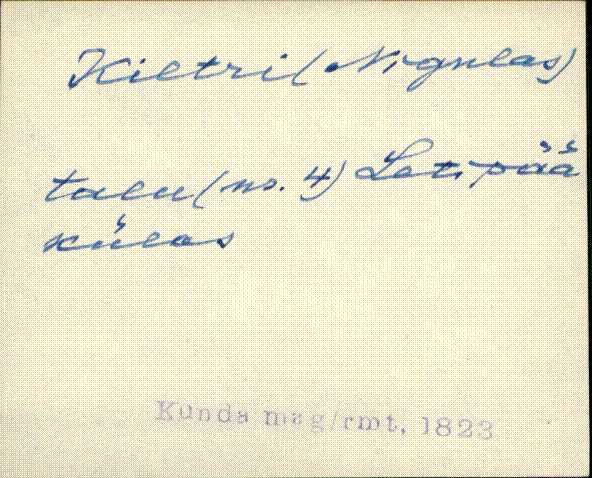 Kiltri (Nigulas)
talu (nr. 4) Letipää
külas
Kunda mag/rmt, 1823